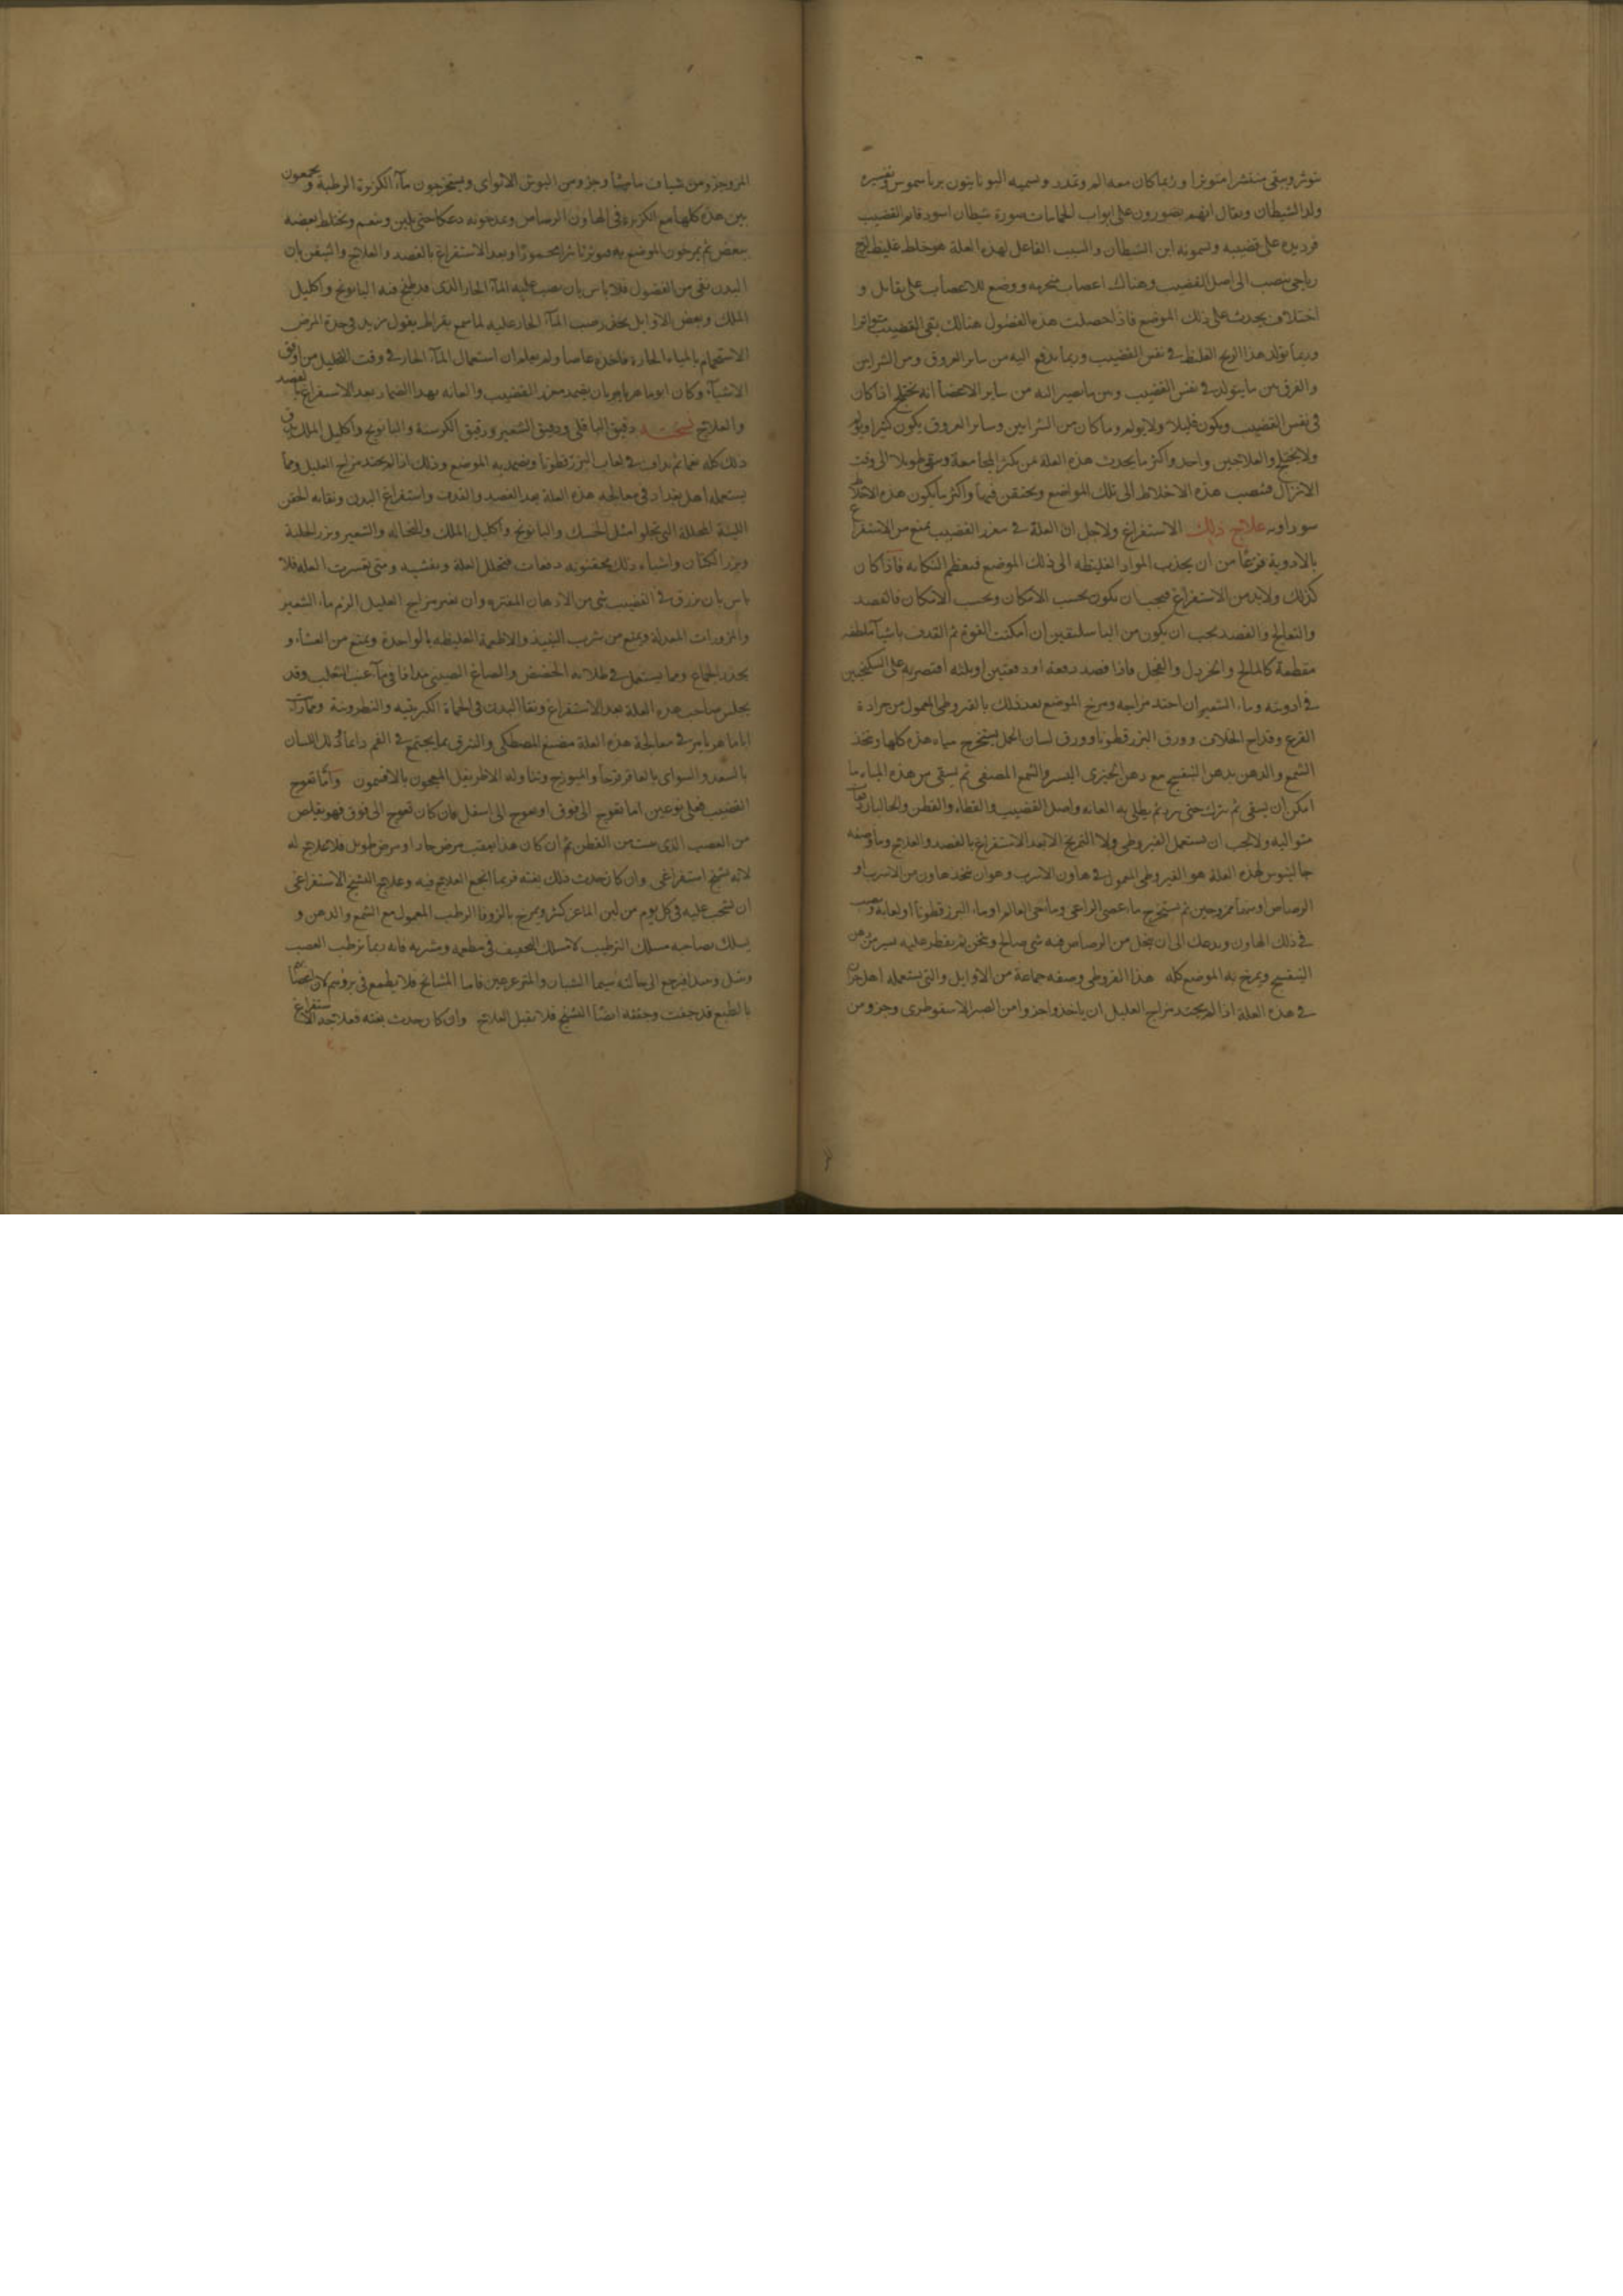 يتوتر ويبقى منتشرا متوترا وربما كان معه الم وتمدد ويسميه اليونانيون برياسموس وتفسيره
ولد الشيطان ويقال انهم يصورون على ابواب الحمامات صورة شيطان اسود قايم القضيب
على قضيبه ويسمونه ابن الشيطان والسبب الفاعل لهذه العلة هو خلط غليظ لزج
رياحي ينصب الى اصل القضيب وهناك اعصاب ووضع للاعصاب على تقابل و
اختلاف يحدث على ذلك الموضع فاذا حصلت هذه الفضول هنالك بقي القضيب متواترا
وربما تولد هذا الريح الغليظ في نفس القضيب وربما يدفع اليه من ساير العروق ومن الشراين
والفرق بين ما يتولد في نفس القضيب وبين ما يصير اليه من ساير الاعضا انه يختلج اذا كان
في نفس القضيب ويكون قليلا ولا يولم وما كان من الشرايين وساير العروق يكون كثيرا ويولم
ولا يختلج والعلاجين واحد واكثر ما يحدث هذه العلة عن كثرة المجامعة وتبقى طويلا الى وقت
الانزال فتنصب هذه الاخلاط الى تلك المواضع ويحتقن فيها واكثر ما يكون هذه الاخلاط
سوداويه علاج ذلك الاستفراغ ولاجل ان العلة في مغرز القضيب يمنع من الاستفراغ
بالادوية فزعا من ان يجذب المواد الغليظه الى ذلك الموضع فيعظم النكايه فاذا كان
كذلك ولا بد من الاستفراغ فيجب ان يكون بحسب الامكان وبحسب الامكان فالفصد
والتعالج والفصد يجب ان يكون من الباسليقين ان امكنت القوة ثم القذف باشيا ملطفه
مقطعة كالمالح والخردل والفجل فاذا فصد دفعه او دفعتين او ثلثه اقتصر به على السكنجبين
في ادويته وماء الشعير ان احتد مزاجه ومرخ الموضع بعد ذلك بالقيروطي المعمول من جرادة
القرع وقداح الخلاف وورق البزرقطونا وورق لسان الحمل يستخرج مياه هذه كلها ويتخذ
الشمع والدهن بدهن البنفسج مع دهن الخيري اليسير والشمع المصفى ثم يسقى من هذه المياه ما
امكن ان يسقى ثم يترك حتى يبرد ثم يطلى به العانه واصل القضيب والقطاه والقطن والحالبان دفعات
متواليه ولا يجب ان يستعمل القيروطي ولا التمريخ الا بعد الاستفراغ بالفصد والعلاج وما وصفه
جالينوس لهذه العلة هو القيروطي المعمول في هاون الاسرب وهو ان يتخذ هاون من الاسرب او
الرصاص او منهما ممزوجين ثم يستخرج ماء عصى الراعي وماء حي العالم او ماء البزرقطونا او لعابه ويصب
في ذلك الهاون ويدعك الى ان ينحل من الرصاص فيه شي صالح ويثخن ثم يقطر عليه يسير من دهن
البنفسج ويمرخ به الموضع كله هذا القيروطي وصفه جماعة من الاوايل والتي يستعمله اهل حران
في هذه العلة اذا لم يحتد مزاج العليل ان ياخذوا جزوا من الصبر الاسقوطري وجزو من
المر وجزو من شياف ماميثا وجزو من البوش الاتواي ويستخرجون ماء الكزبرة الرطبة ويجمعون
بين هذه كلها مع الكزبرة في الهاون الرصاص ويدعكونه دعكا حتى يلين وينعم ويختلط بعضه
ببعض ثم يمرخون الموضع به وبعد الاستفراغ بالفصد والعلاج والتيقن بان
البدن نقي من الفضول فلا باس بان يصب عليه الماء الحار الذي قد طبخ فيه البابونج واكليل
الملك وبعض الاوايل يحذر صب الماء الحار عليه لما سمع بقراط يقول يزيد في حدة المرض
الاستحمام بالمياه الحارة فاخذه عاصا ولم يعلم ان استعمال الماء الحار في وقت التحليل من اوفق
الاشياء وكان ابو ماهر يامر بان يضمد مغرز القضيب والعانه بهذا الضماد بعد الاستفراغ بالفصد
والعلاج نسخته دقيق الباقلى ودقيق الشعير ودقيق الكرسنة والبابونج واكليل الملك يدق
ذلك كله ناعما ثم يداف في لعاب البزرقطونا ويضمد به الموضع وذلك اذا لم يحتد مزاج العليل ومما
يستعمله اهل بغداد في معالجة هذه العلة بعد الفصد والقذف واستفراغ البدن ونقايه الحقن
اللينة المحللة التي تجلوا مثل الحسك والبابونج واكليل الملك والنخاله والشعير وبزر الحلبة
وبزر الكتان واشباه ذلك يحقنونه دفعات فيحلل العلة ويفشيه ومتى تعسرت العله فلا
باس بان يزرق في القضيب شي من الادهان المفتره وان تغير مزاج العليل الزم ماء الشعير
والمزورات المعدلة ويمنع من شرب النبيذ والاطعمة الغليظه بالواحدة ويمنع من العشاء و
يحذر الجماع ومما يستعمل في طلائه الحضض والصماغ الصيني مدافا في ماء عنب الثعلب وقد
يجلس صاحب هذه العلة بعد الاستفراغ ونقا البدن في الحماة الكبريتيه والنطرونية ومما راى
ابا ماهر يامر في معالجة هذه العلة مضغ المصطكى والتبزق بما يجتمع في الفم دايما ودلك اللسان
بالسعد والسواى بالعاقرقرحا والميوزج وتناوله الاطريفل المعجون بالافتيمون واما تعوج
القضيب فعلى نوعين اما تعوج الى فوق او تعوج الى اسفل فان كان تعوج الى فوق فهو تقلص
من العصب الذي ينبت من القطن ثم ان كان هذا يعقب مرض حاد او مرض طويل فلا علاج له
لانه تشنج استفراغي وان كان حدث ذلك بغته فربما انجع العلاج فيه وعلاج التشنج الاستفراغي
ان تنتخب عليه في كل يوم من لبن الماعز كثير ويمرخ بالزوفا الرطب المعمول مع الشمع والدهن و
يسلك بصاحبه مسلك الترطيب لا مسلك التجفيف في مطعمه ومشربه فانه ربما ترطب العصب
فيرجع الى حالته سيما الشبان والمترعرعين فاما المشايخ فلا يطمع في بروهم لان
بالطبع قد جفت وجففه ايضا التشنج فلا تقبل العلاج وان كان حدث بغته فعلاجه الاستفراغ